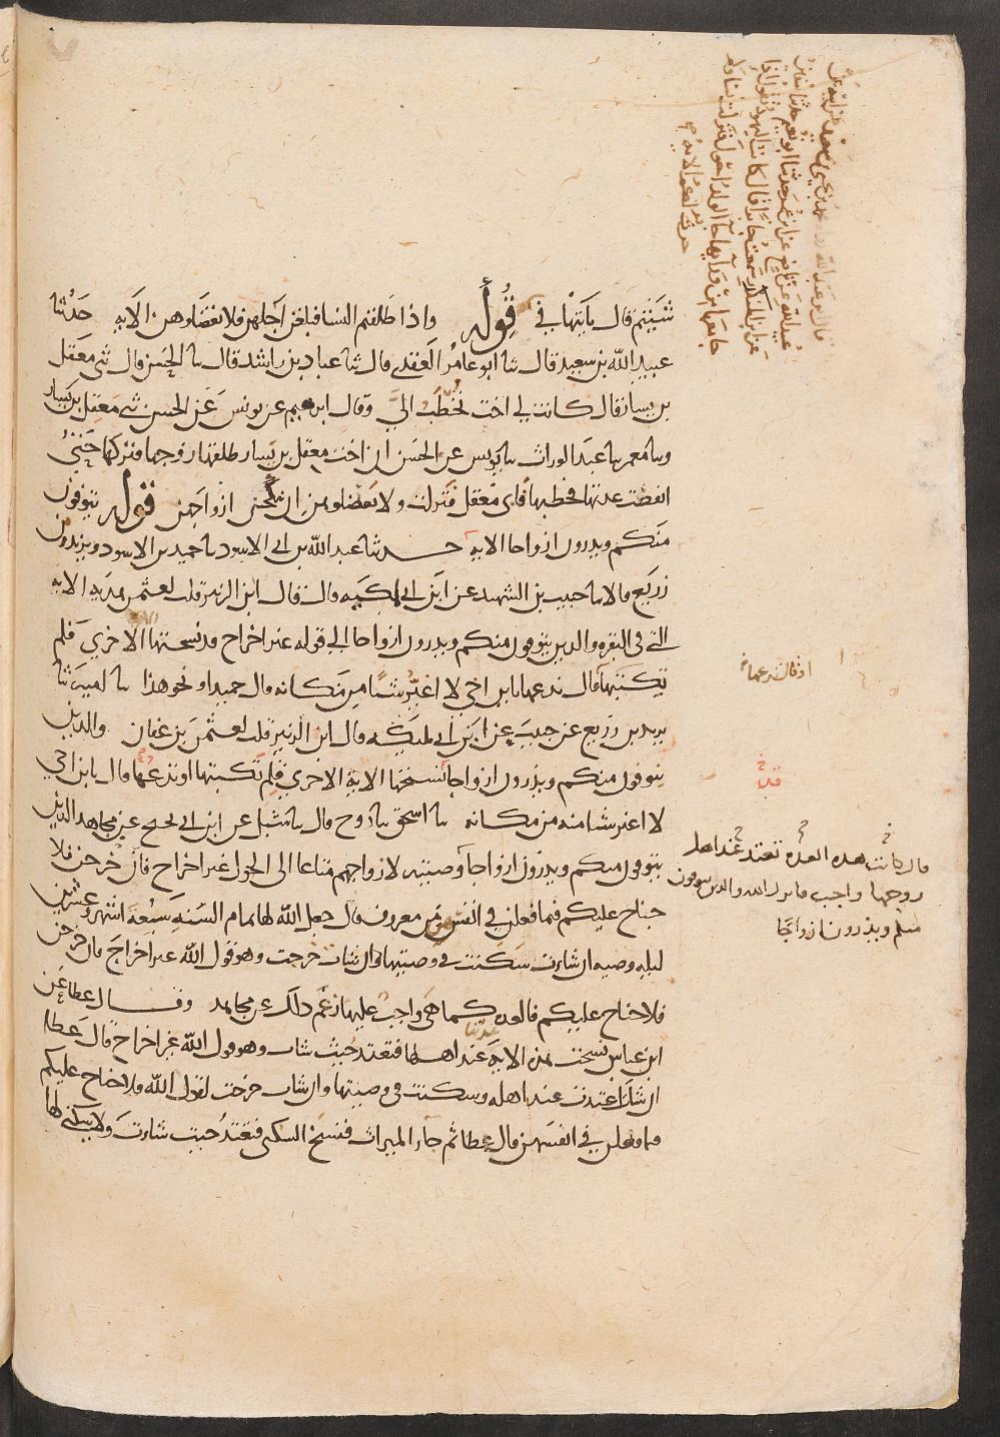 شئتم قال يأتيها في قوله واذا طلقتم النسا فبلغن اجلهن فلا تعضلوهن الايه حدثنا
عبيد الله بن سعيد قال ثنا ابو عامر العقدي قال ثنا عباد بن راشد قال ثنا الحسن قال ثني معقل
بن يسار قال كانت لي اخت تُخطَب اليَّ وقال ابرهيم عن يونس عن الحسن ثني معقل بن يسار
وثنا معمر ثنا عبد الوارث ثنا يونس عن الحسن ان اخت معقل بن يسار طلقها زوجها فتركها حتى
انقضت عدتها فخطبها فابى معقل فنزلت ولا تعضلوهن ان ينكحن ازواجهن قوله يتوفون
منكم ويذرون ازواجا الايه حدثنا عبد الله بن ابي الاسود ثنا حميد بن الاسود ويزيد بن
زريع قالا ثنا حبيب بن الشهيد عن ابن ابي مليكه قال قال ابن الزبير قلت لعثمن هذه الايه
التي في البقره والذين يتوفون منكم ويذرون ازواجا الي قوله غير اخراج قد نسختها الاخرى فلم
تكتبها قال ندعها يابن اخي لا اغير شئا من مكانه قال حميد او نحو هذا ثنا اميه ثنا
يزيد بن زريع عن حبيب عن ابن ابي مليكه قال ابن الزبير قلت لعثمن بن عفان والذين
يتوفون منكم ويذرون ازواجا نسختها الاية الاخرى فلم تكتبها او تدعها قال يابن اخي
لا اغير شئا منه من مكانه ثنا اسحق ثنا روح قال ثنا شبل عن ابن ابي نجيح عن مجاهد الذين
يتوفون منكم ويذرون ازواجا وصية لازواجهم متاعا الى الحول غير اخراج فان خرجن فلا
جناح عليكم فيما فعلن في انفسهن من معروف قال جعل الله لها تمام السنه سبعة اشهر وعشرين
ليله وصيه ان شاءت سكنت في وصيتها وان شات خرجت وهو قول الله غير اخراج فان خرجن
فلا جناح عليكم فالعده كما هي واجب عليها زعم ذلك عن مجاهد وقال عطا عن
ابن عباس نسخت هذه الايه عدتها عند اهلها فتعتد حيث شات وهو قول الله غير اخراج قال عطا
ان شات اعتدت عند اهله وسكنت في وصيتها وان شات خرجت لقول الله فلا جناح عليكم
فيما فعلن في انفسهن قال عطا ثم جاء الميراث فنسخ السكنى فتعتد حيث شاءت ولا سكنى لها
او قال ندعها
قال كانت هذه العده تعتد عند اهل
زوجها واجب فانزل الله والذين يتوفون
منكم ويذرون ازواجا